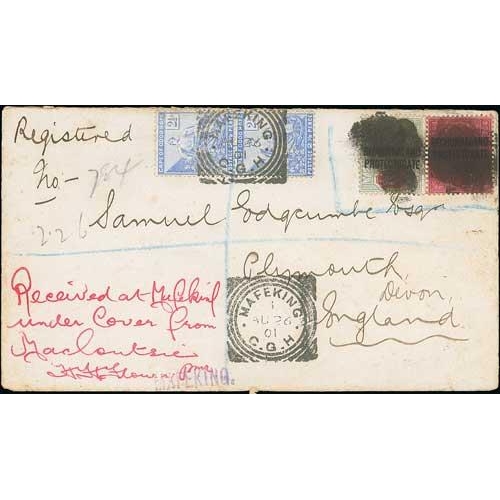 Registered
No - 784
226
Samuel Edgcumbe Esqr
Plymouth,
Devon,
England.
Received at Mafeking
under Cover from
Macloutsie
MAFEKING.
MAFEKING
C.G.H
MAFEKING
1
AU 26
01
C.G.H
2½
2½
PROTECTORATE
PROTECTORATE